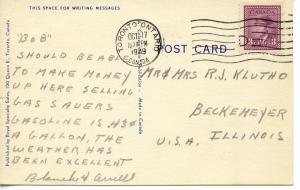 THIS SPACE FOR WRITING MESSAGES
"BOB"
SHOULD BE ABLE
TO MAKE MONEY
UP HERE SELLING
GAS SAVERS
GASOLINE IS 43¢
A GALLON, THE
WEATHER HAS
BEEN EXCELLENT
Blanche &
Published by Royal Specialty Sales, 150 Queen E., Toronto, Canada
Made in Canada
TORONTO ONTARIO
OCT 17
PM
1949
CANADA
POST CARD
CANADA
MR & MRS R.J. KLUTHO
BECKEMEYER
ILLINOIS
U.S.A.